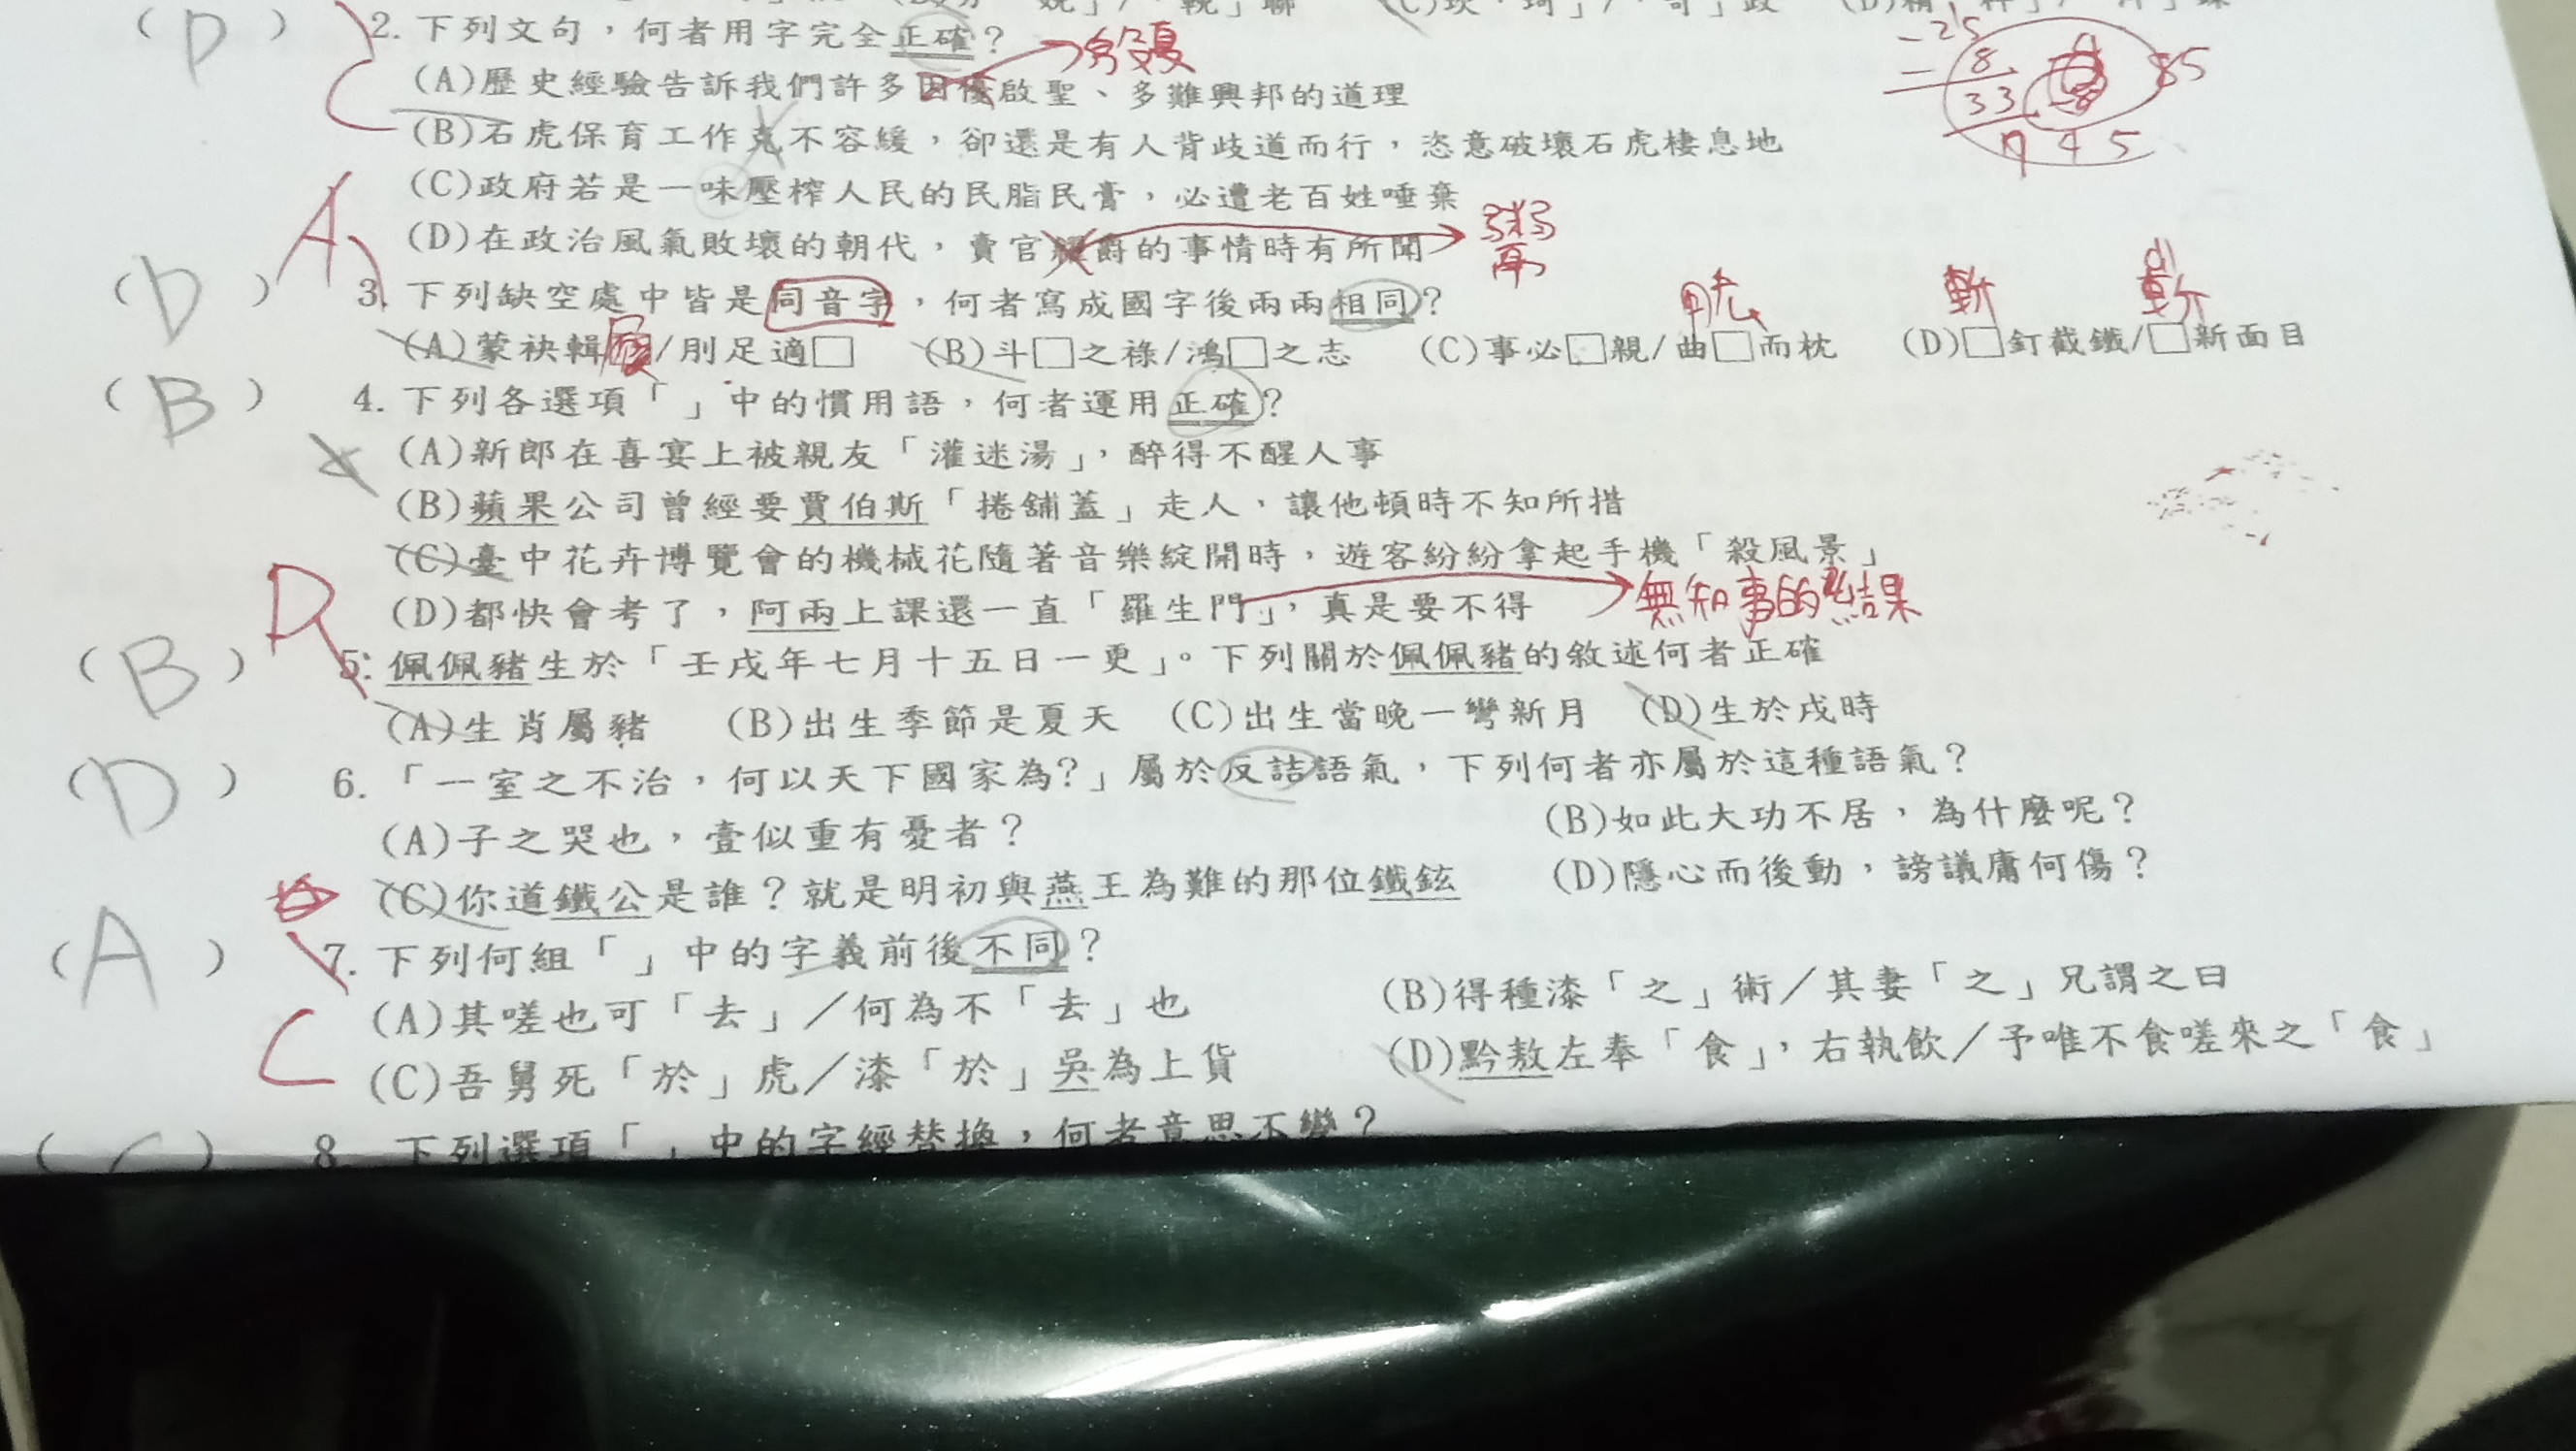 (D) 2. 下列文句，何者用字完全正確？
(A)歷史經驗告訴我們許多因優啟聖、多難興邦的道理
(B)石虎保育工作克不容緩，卻還是有人背歧道而行，恣意破壞石虎棲息地
C
(C)政府若是一味壓榨人民的民脂民膏，必遭老百姓唾棄
(D)在政治風氣敗壞的朝代，賣官爵的事情時有所聞
鬻
(D) 3. 下列缺空處中皆是同音字，何者寫成國字後兩兩相同？
A
肱 斬 嶄
(A)蒙袂輯屨/刖足適□ (B)斗□之祿/鴻□之志 (C)事必□親/曲□而枕 (D)□釘截鐵/□新面目
(B) 4. 下列各選項「」中的慣用語，何者運用正確？
(A)新郎在喜宴上被親友「灌迷湯」，醉得不醒人事
(B)蘋果公司曾經要賈伯斯「捲舖蓋」走人，讓他頓時不知所措
(C)臺中花卉博覽會的機械花隨著音樂綻開時，遊客紛紛拿起手機「殺風景」
(D)都快會考了，阿兩上課還一直「羅生門」，真是要不得
無知事的結果
(B) 5. 佩佩豬生於「壬戌年七月十五日一更」。下列關於佩佩豬的敘述何者正確
D
(A)生肖屬豬 (B)出生季節是夏天 (C)出生當晚一彎新月 (D)生於戌時
(D) 6. 「一室之不治，何以天下國家為?」屬於反詰語氣，下列何者亦屬於這種語氣？
(A)子之哭也，壹似重有憂者？ (B)如此大功不居，為什麼呢？
(C)你道鐵公是誰？就是明初與燕王為難的那位鐵鉉 (D)隱心而後動，謗議庸何傷？
(A) 7. 下列何組「」中的字義前後不同？
C
(A)其嗟也可「去」／何為不「去」也 (B)得種漆「之」術／其妻「之」兄謂之曰
(C)吾舅死「於」虎／漆「於」吳為上貨 (D)黔敖左奉「食」，右執飲／予唯不食嗟來之「食」
8. 下列選項「」中的字經替換，何者意思不變？